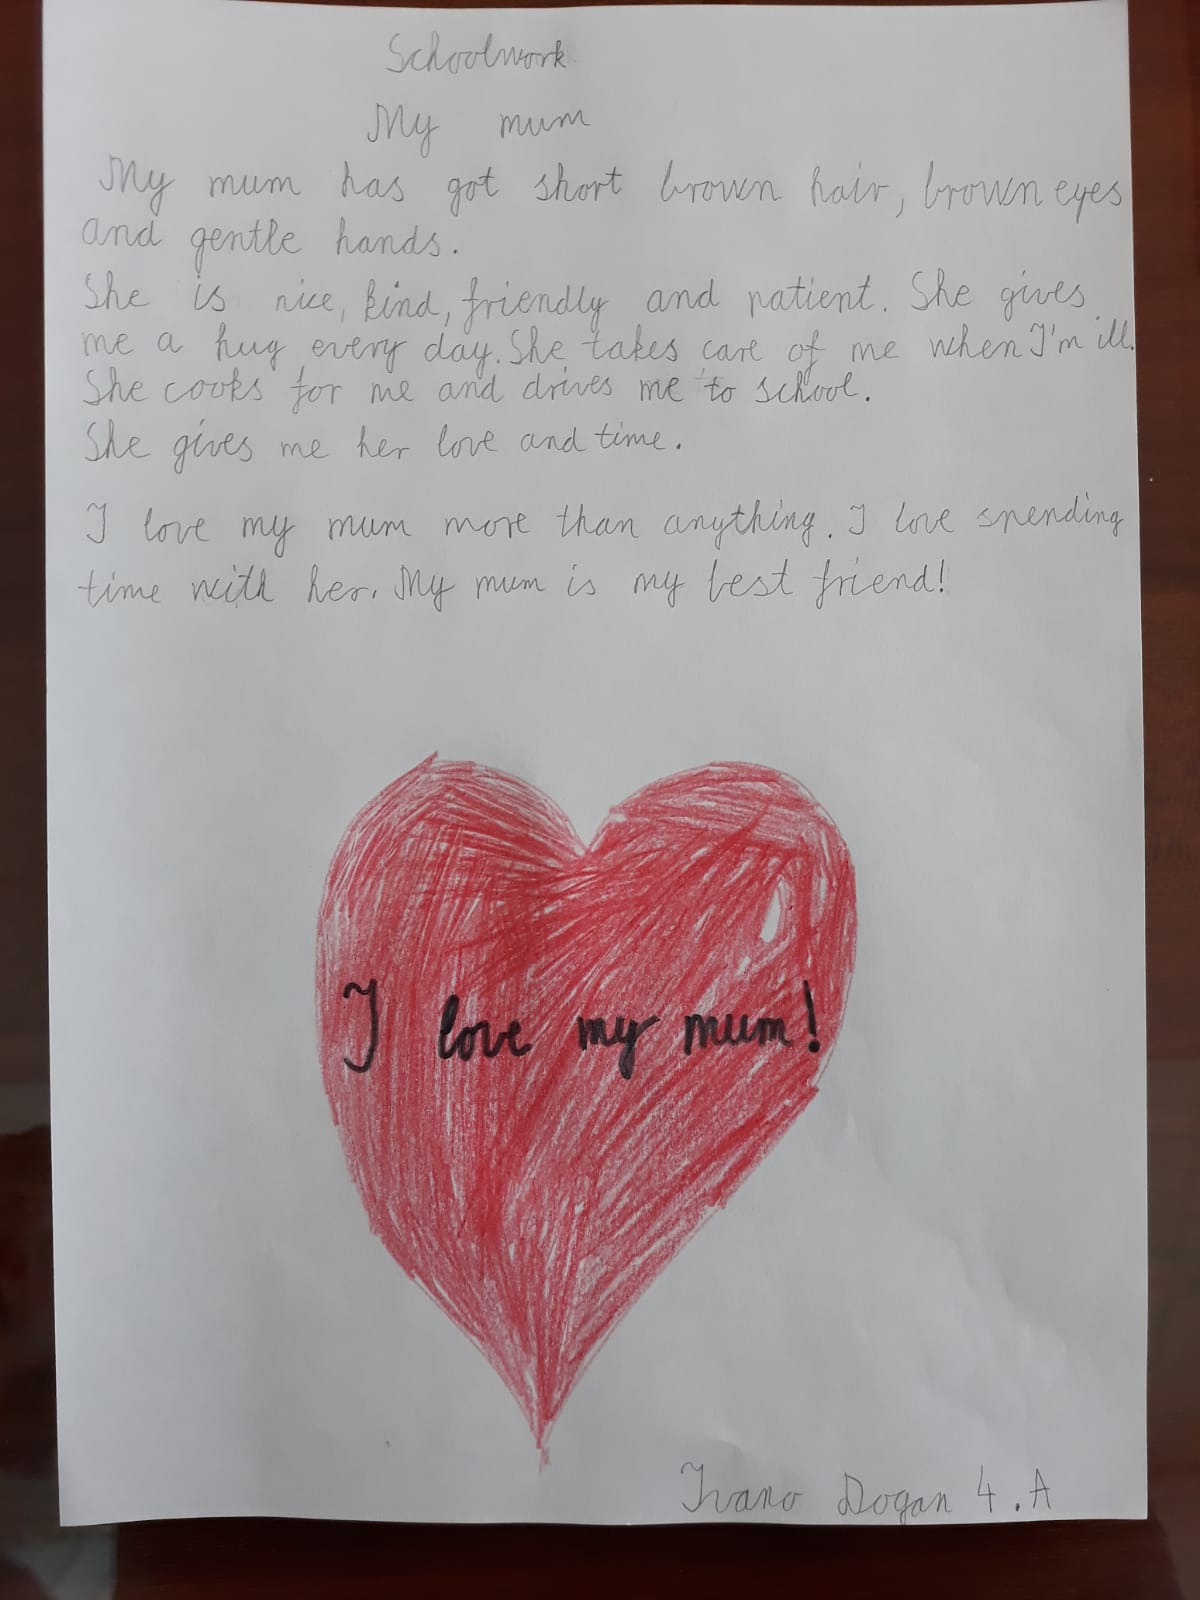 Schoolwork
My mum
My mum has got short brown hair, brown eyes
and gentle hands.
She is nice, kind, friendly and patient. She gives
me a hug every day. She takes care of me when I'm ill.
She cooks for me and drives me to school.
She gives me her love and time.
I love my mum more than anything. I love spending
time with her. My mum is my best friend!
I love my mum!
Ivano Dogan 4.A